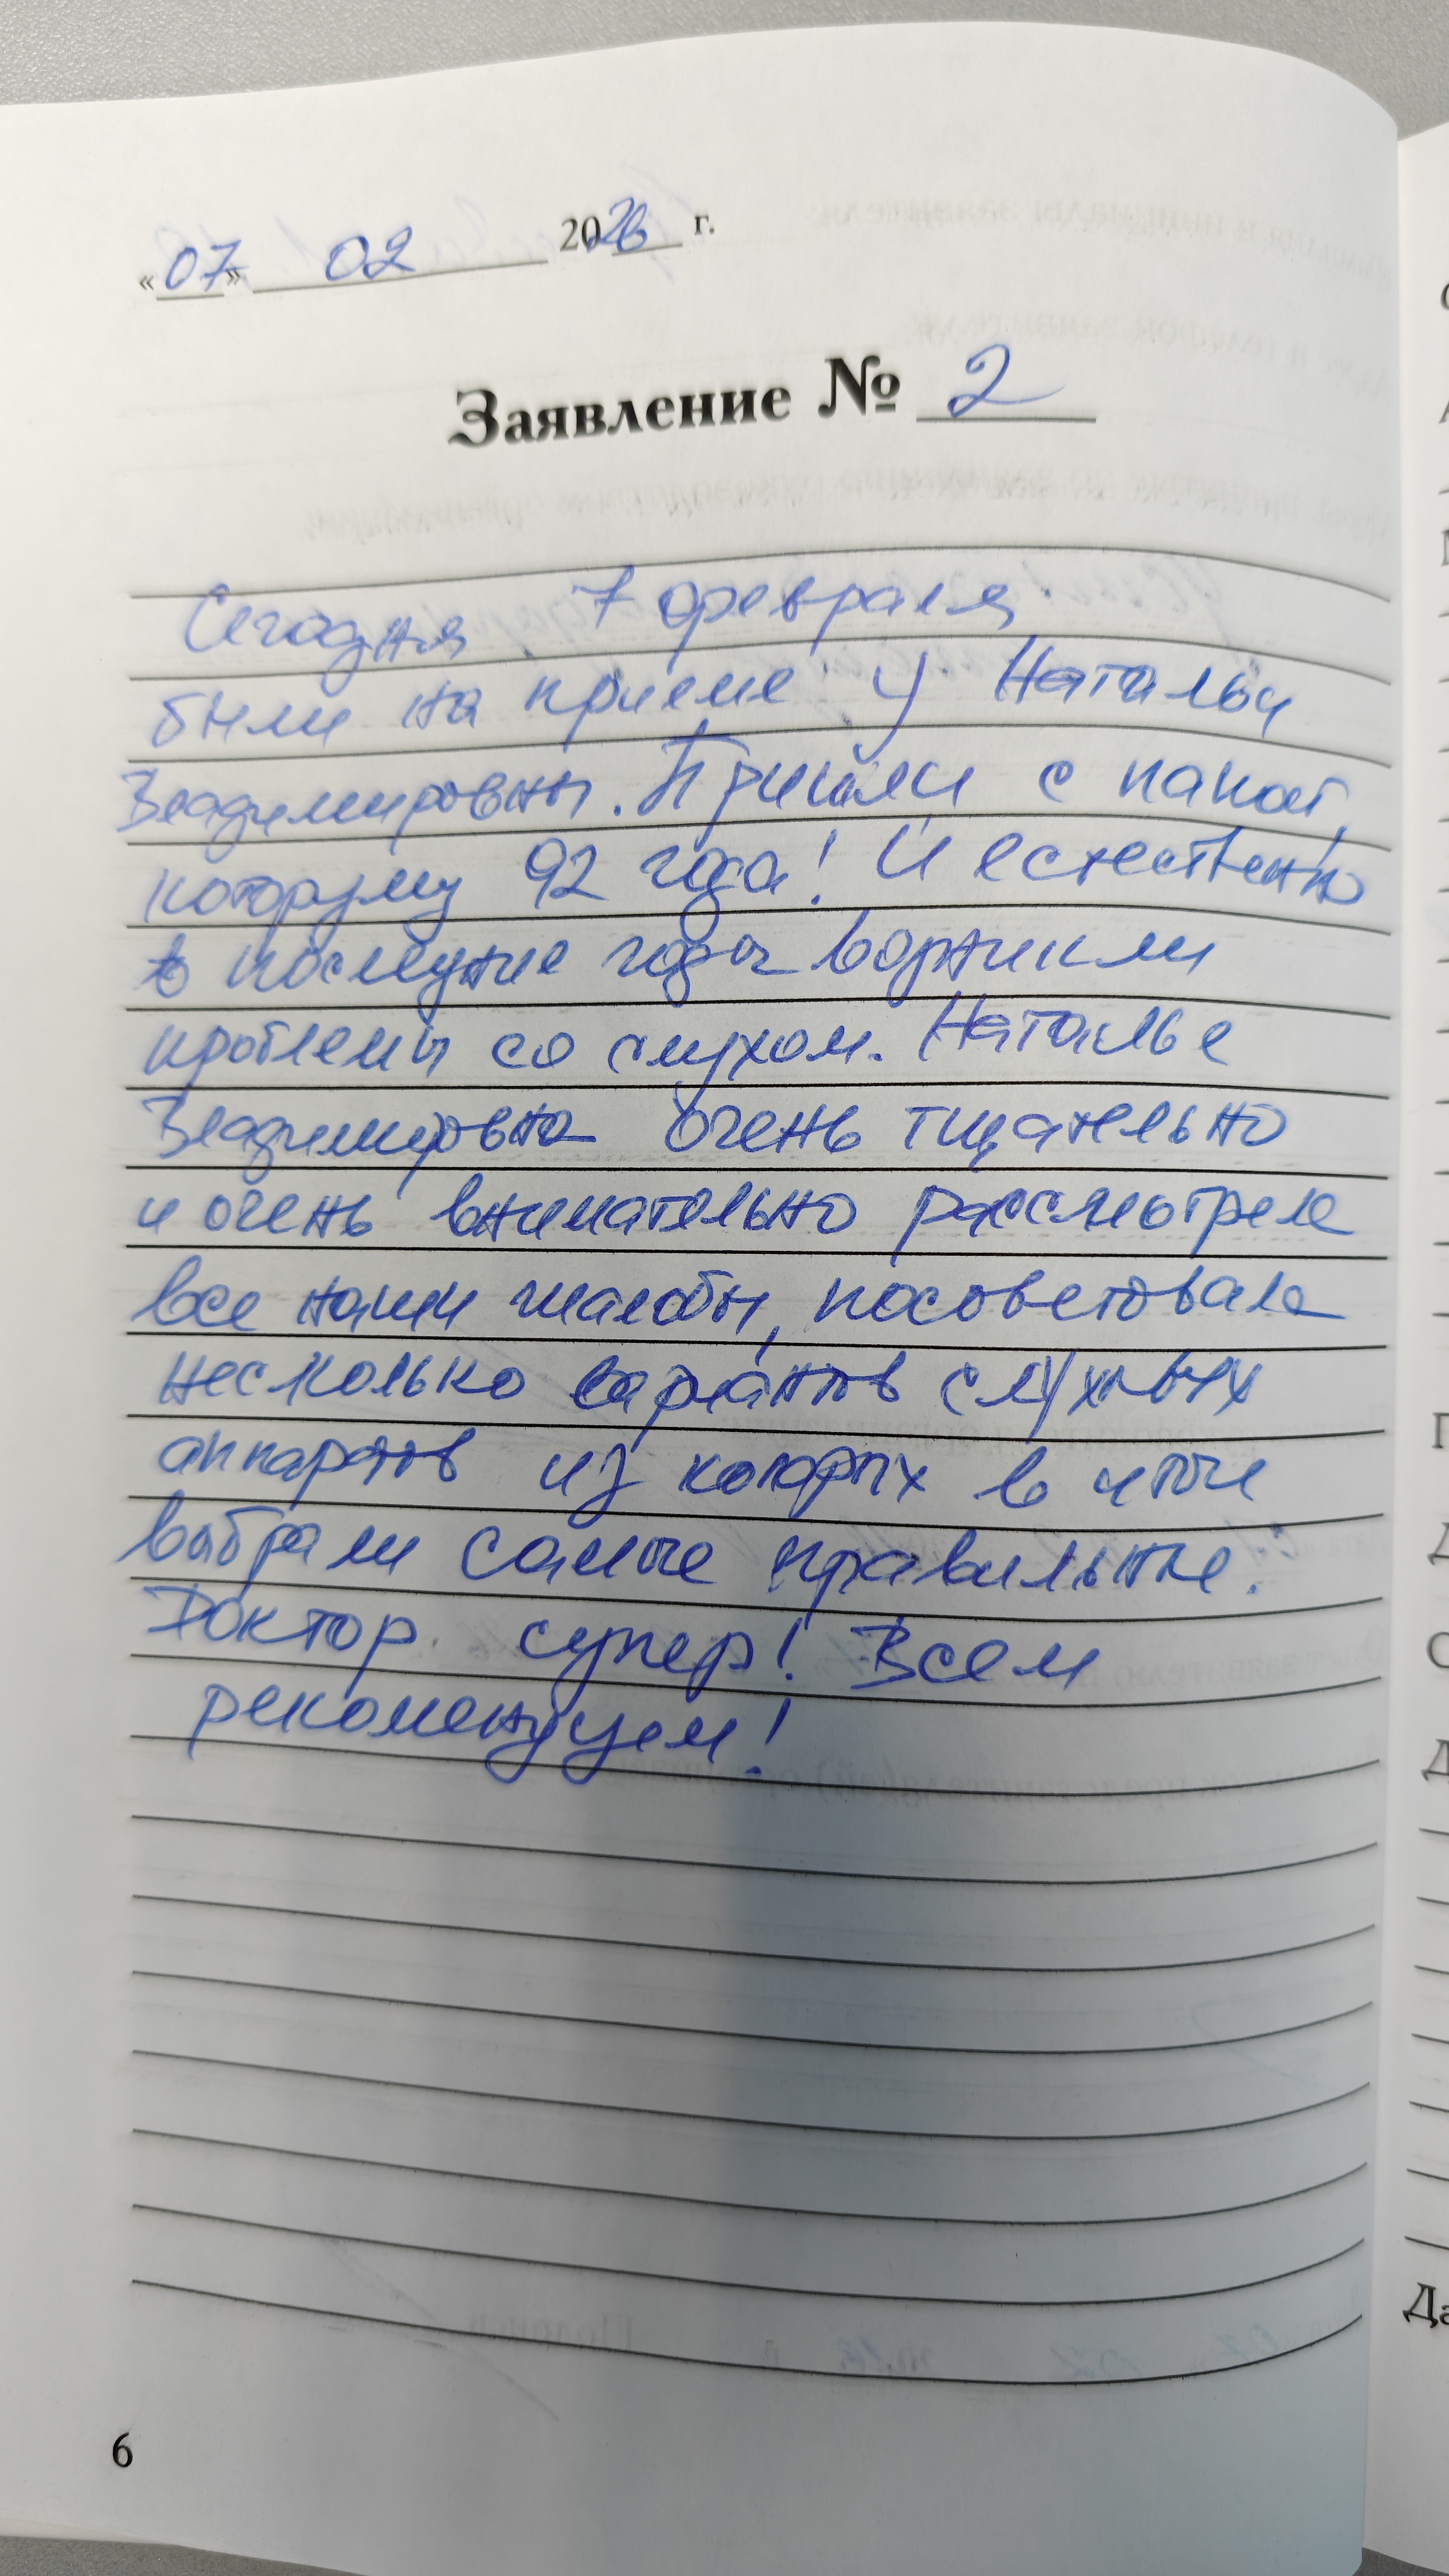 «07» 02 2026 г.
Заявление № 2
Сегодня 7 февраля
были на приеме у Натальи
Владимировны. Пришли с папой,
которому 92 года! И естественно
в последние годы возникли
проблемы со слухом. Наталье
Владимировна очень тщательно
и очень внимательно рассмотрела
все наши жалобы, посоветовала
несколько вариантов слуховых
аппаратов из которых в итоге
выбрали самые правильные.
Доктор супер! Всем
рекомендуем!
6